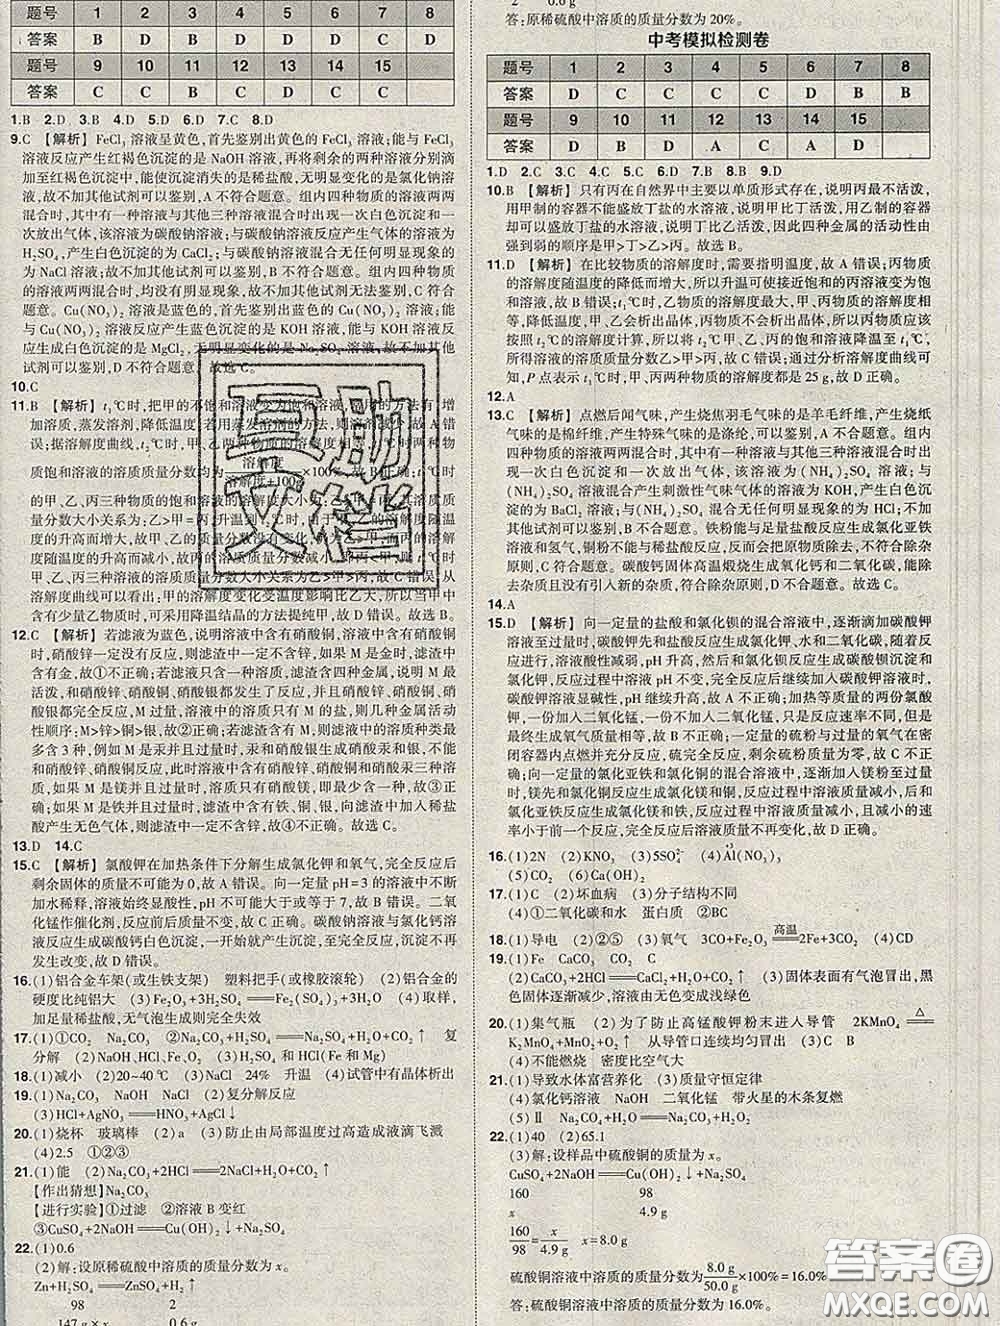 题号 1 2 3 4 5 6 7 8
答案 B D D B D D C D
题号 9 10 11 12 13 14 15
答案 C C B C D C C
1.B 2.D 3.D 4.B 5.D 6.D 7.C 8.D
9.C 【解析】FeCl₃ 溶液呈黄色,首先鉴别出黄色的 FeCl₃ 溶液;能与 FeCl₃
溶液反应产生红褐色沉淀的是 NaOH 溶液,再将剩余的两种溶液分别滴
加到沉淀中,能使沉淀消失的是稀盐酸,无明显变化的是氯化钠溶
液,故不加其他试剂可以鉴别,A 不符合题意。组内四种物质的溶液两两
混合时,其中有一种溶液与其他三种溶液混合时出现一次白色沉淀和
一次放出气体,该溶液为碳酸钠溶液;与碳酸钠溶液反应产生气体的溶液为
H₂SO₄,产生白色沉淀的为 CaCl₂;与碳酸钠溶液混合无任何明显现象的
为 NaCl 溶液;故不加其他试剂可以鉴别,B 不符合题意。组内四种物质
的溶液两两混合时,均没有明显现象,故不加其他试剂无法鉴别,C 符合
题意。Cu(NO₃)₂ 溶液是蓝色的,首先鉴别出蓝色的 Cu(NO₃)₂ 溶液;能
与 Cu(NO₃)₂ 溶液反应产生蓝色沉淀的是 KOH 溶液,能与 KOH 溶液反
应生成白色沉淀的是 MgCl₂,无明显变化的是 Na₂SO₄ 溶液,故不加其他
试剂可以鉴别,D 不符合题意。故选 C。
10.C
11.B 【解析】t₁℃时,把甲的不饱和溶液变为饱和溶液的方法有,增加
溶质,蒸发溶剂,降低温度,若用蒸发溶剂的方法,则溶质减少,故 A 错
误;据溶解度曲线,t₂℃时,甲、乙两种物质的溶解度相等,而两种物
质饱和溶液的溶质质量分数均为溶解度/溶解度+100g×100%,故 B 正确;t₁℃时
的甲、乙、丙三种物质的饱和溶液
量分数大小关系为:乙>甲=丙;升温到 t₂℃时,由于甲、乙的溶解度随温
度的升高而增大,故
解度随温度的升高而减小,故
溶质质量分数大小关系为乙>甲>丙,故 C 错误;从
溶解度曲线可以看出:甲的溶解度变化受温度影响比乙大,所以当甲中
含有少量乙物质时,可采用降温结晶的方法提纯甲,故 D 错误。故选 B。
12.C 【解析】若滤液为蓝色,说明溶液中含有硝酸铜,溶液中含有硝酸铜
时,硝酸锌一定没有反应,则滤渣中一定不含锌,如果 M 是金时,滤渣中
含有金,故①不正确。若溶液只含一种溶质,滤渣含四种金属,说明 M 最
活泼,和硝酸锌、硝酸铜、硝酸银都发生了反应,并且和硝酸锌、硝酸铜、
硝酸银都完全反应,M 过量,溶液中的溶质是 M 的盐,则几种金属活动
性顺序:M>锌>铜>银,故②正确;若溶液含四种溶质,则溶液的溶质种类最多
含有 3 种,例如 M 是汞并且过量时,汞和硝酸银生成硝酸汞和银,不能
和硝酸铜、硝酸锌反应,此时溶液中含有硝酸锌、硝酸铜和硝酸汞三种溶
质,如果 M 是镁并且过量时,溶液中的溶质最少,是硝酸镁,故③正确;
如果 M 是铁并且过量时,滤渣中含有铁、铜、银,向滤渣中加入稀盐
酸产生无色气体,则滤渣中一定不含锌,故④不正确。故选 C。
13.D 14.C
15.C 【解析】氯酸钾在加热条件下分解生成氯化钾和氧气,完全反应后
剩余固体的质量不可能为 0,故 A 错误。向一定量 pH=3 的溶液中不断
加水稀释,溶液始终显酸性,pH 不可能大于或等于 7,故 B 错误。二氧
化锰作催化剂,反应前后质量不变,故 C 正确。碳酸钠溶液与氯化钙溶
液反应生成碳酸钙白色沉淀,一开始就产生沉淀,至完全反应,沉淀不再
发生改变,故 D 错误。
16.(1)铝合金车架(或生铁支架) 塑料把手(或橡胶滚轮) (2)铝合金的
硬度比纯铝大 (3)Fe₂O₃+3H₂SO₄══Fe₂(SO₄)₃+3H₂O (4)取样,
加足量稀盐酸,无气泡生成则完全失效
17.(1)①CO₂ Na₂CO₃ ②Na₂CO₃+H₂SO₄══Na₂SO₄+H₂O+CO₂↑ 复
分解 (2)NaOH、HCl、Fe₂O₃ (3)H₂SO₄ 和 HCl(Fe 和 Mg)
18.(1)减小 (2)20~40℃ (3)NaCl 24% 升温 (4)试管中有晶体析出
19.(1)Na₂CO₃ NaOH NaCl (2)复分解反应
(3)HCl+AgNO₃══HNO₃+AgCl↓
20.(1)烧杯 玻璃棒 (2)a (3)防止由局部温度过高造成液滴飞溅
(4)2.5 ①②③
21.(1)能 (2)Na₂CO₃+2HCl══2NaCl+H₂O+CO₂↑
【作出猜想】Na₂CO₃
【进行实验】①过滤 ②溶液 B 变红
③CuSO₄+2NaOH══Cu(OH)₂↓+Na₂SO₄
22.(1)0.6
(2)解:设原稀硫酸中溶质的质量分数为 x。
Zn+H₂SO₄══ZnSO₄+H₂↑
98 2
147 g×x 0.6 g
2 0.6 g
答:原稀硫酸中溶质的质量分数为 20%。
中考模拟检测卷
题号 1 2 3 4 5 6 7 8
答案 D C C C C D B B
题号 9 10 11 12 13 14 15
答案 D B D A C A D
1.D 2.C 3.C 4.C 5.C 6.D 7.B 8.B 9.D
10.B 【解析】只有丙在自然界中主要以单质形式存在,说明丙最不活泼,
用甲制的容器不能盛放丁盐的水溶液,说明甲比丁活泼,用乙制的容器
却可以盛放丁盐的水溶液,说明丁比乙活泼,因此四种金属的活动性由
强到弱的顺序是甲>丁>乙>丙。故选 B。
11.D 【解析】在比较物质的溶解度时,需要指明温度,故 A 错误;丙物质
的溶解度随温度的升高而减小,所以升温可使接近饱和的丙溶液变为饱
和溶液,故 B 错误;t₂℃时,甲、乙物质的溶解度最大,甲、丙物质的溶解度相
等,降低温度,甲、乙会析出晶体,丙物质不会析出晶体,所以丙物质应该
按照 t₂℃的溶解度计算,所以将 t₂℃甲、乙、丙的饱和溶液降温至 t₁℃时,
所得溶液的溶质质量分数乙>甲>丙,故 C 错误;通过分析溶解度曲线可
知,P 点表示 t₁℃时,甲、丙两种物质的溶解度都是 25 g,故 D 正确。
12.A
13.C 【解析】点燃后闻气味,产生烧焦羽毛气味的是羊毛纤维,产生烧纸气
味的是棉纤维,产生特殊气味的是涤纶,可以鉴别,A 不合题意。组内
四种物质的溶液两两混合时,其中有一种溶液与其他三种溶液混合时出现
一次白色沉淀和一次放出气体,该溶液为 (NH₄)₂SO₄ 溶液;与 (NH₄)₂SO₄
溶液混合产生刺激性气味气体的溶液为 KOH,产生白色沉
淀的为 BaCl₂ 溶液;与 (NH₄)₂SO₄ 溶液混合无任何明显现象的为 HCl;不
加其他试剂可以鉴别,B 不合题意。铁粉能与足量盐酸反应生成氯化亚铁
溶液和氢气,铜粉不能与稀盐酸反应,反应后过滤,能除去杂质但没有得到
碳酸钙固体高温煅烧生成氧化钙和二氧化碳,能除
去杂质且没有引入新的杂质,符合除杂原则,D 不合题意。
14.A
15.D 【解析】向一定量的盐酸和氯化钡的混合溶液中,逐渐滴加碳酸钾
溶液至过量时,碳酸钾先和盐酸反应生成氯化钾、水和二氧化碳,随着反
应进行,溶液酸性减弱,pH 升高,然后和氯化钡反应生成碳酸钡沉淀和
氯化钾,溶液 pH 不变,完全反应后继续加入碳酸钾,碳
酸钾溶液显碱性,pH 继续升高,故 A 不正确;加热等质量的两份氯酸
钾,一份加入二氧化锰,一份不加入二氧化锰,只是反应速率不同,但是
最终生成氧气质量相等,故 B 不正确。一定量的硫粉与过量的氧气在密
闭容器内点燃并充分反应,硫完全反应,剩余硫粉质量为零,故 C 不正
确;向一定量的氯化亚铁和氯化铜的混合溶液中,逐渐加入镁粉至过量
时,镁先和氯化铜反应生成氯化镁和铜,反应过程中溶液质量减小,后和
和氯化亚铁反应生成氯化镁和铁,反应过程中溶液质量减小,且减小的速
率小于前一个反应,完全反应后溶液质量不再变化,故 D 正确。
16.(1)2N (2)KNO₃ (3)5SO₄²⁻ (4)Al(NO₃)₃
(5)CO₂ (6)Ca(OH)₂
17.(1)C (2)坏血病 (3)分子结构不同
(4)①二氧化碳和水 蛋白质 ②BC
18.(1)导电 (2)②⑤ (3)氧气 3CO+Fe₂O₃══高温2Fe+3CO₂ (4)CD
19.(1)Fe CaCO₃ CO₂
(2)CaCO₃+2HCl══CaCl₂+H₂O+CO₂↑ (3)固体表面有气泡冒出,黑色
固体逐渐减少,溶液由无色变成浅绿色
20.(1)集气瓶 (2)为了防止高锰酸钾粉末进入导管 2KMnO₄══△
K₂MnO₄+MnO₂+O₂↑ 从导管口连续均匀冒出 (3)C B
(4)不能燃烧 密度比空气大
21.(1)导致水体富营养化 (3)质量守恒定律
(4)氯化钙溶液 NaOH 二氧化锰 带火星的木条复燃
(5)Ⅱ Na₂CO₃+H₂O══H₂O+CO₂↑
22.(1)40 (2)65.1
(3)解:设样品中硫酸铜的质量为 x。
CuSO₄+2NaOH══Cu(OH)₂↓+Na₂SO₄
160 98
x 4.9 g
160/98=x/4.9 g x=8.0 g
硫酸铜溶液中溶质的质量分数为8.0 g/50.0 g×100%=16.0%
答:硫酸铜溶液中溶质的质量分数为 16.0%。
互助
文档
答案圈
MXQE.COM